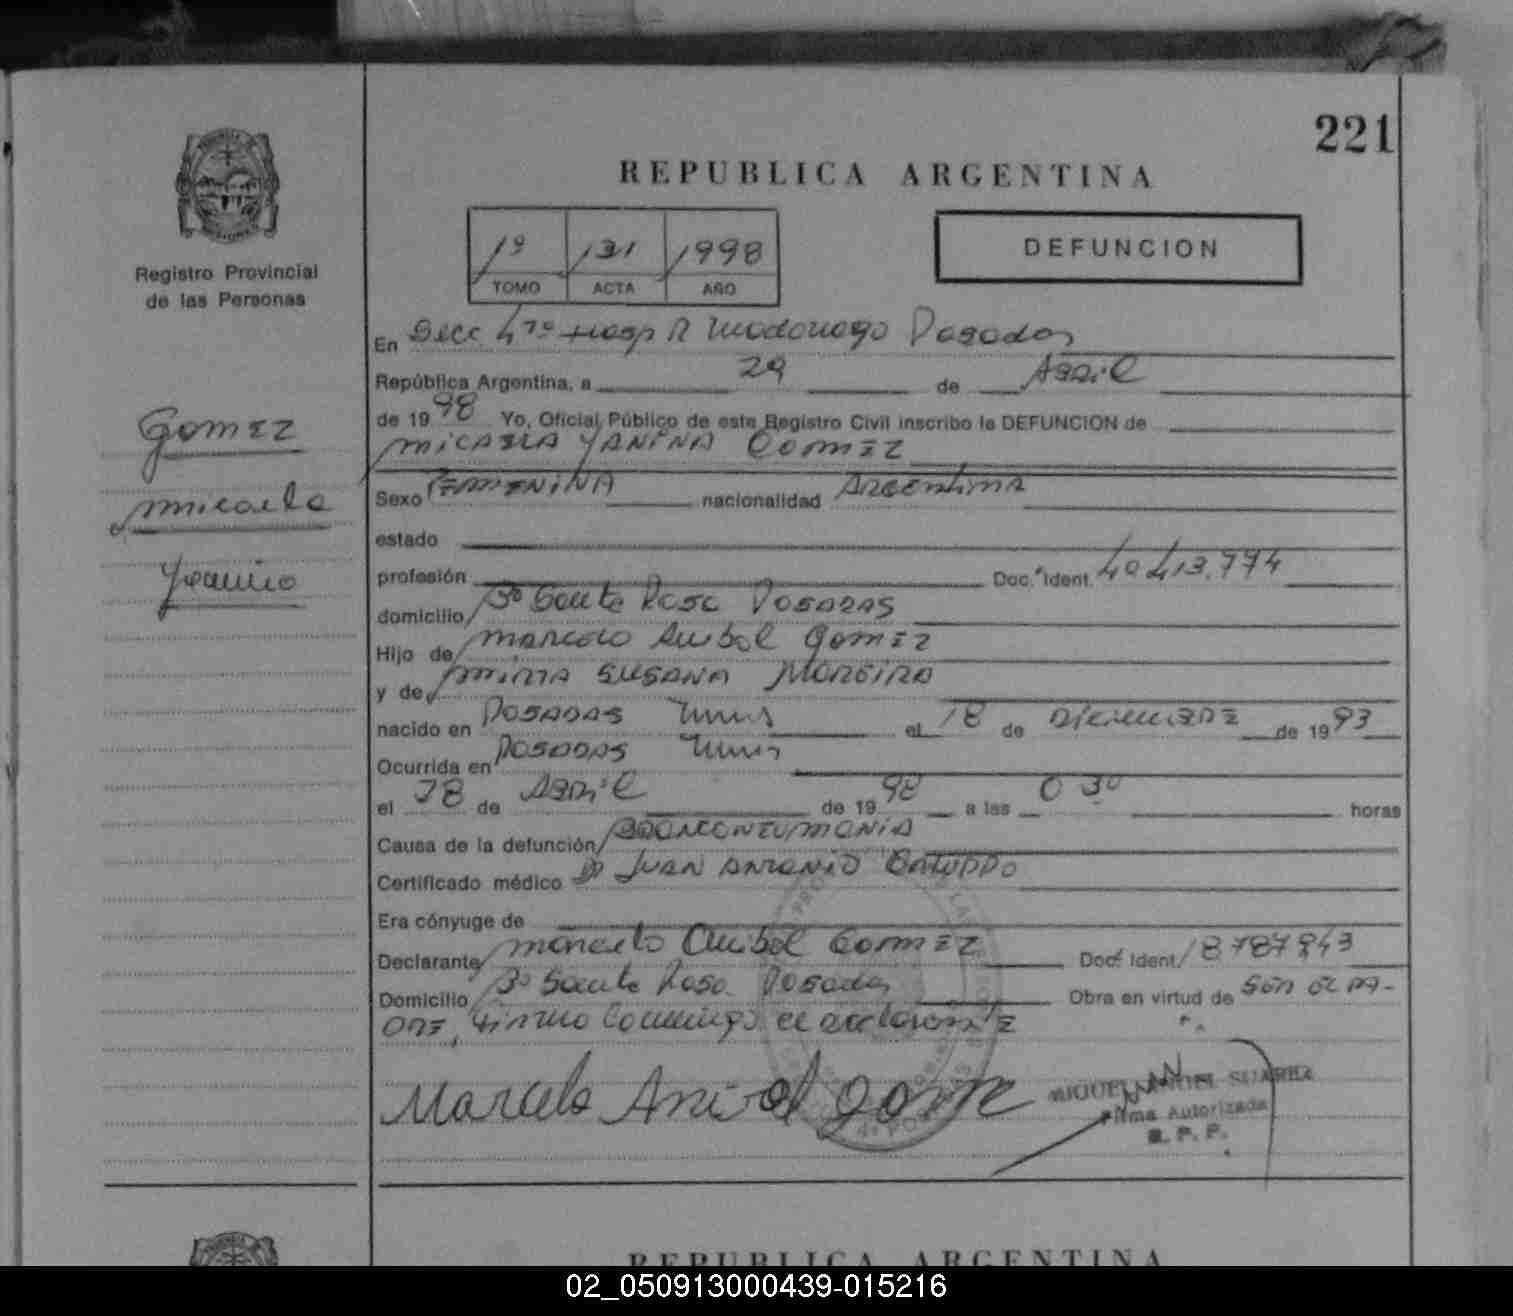 221
REPUBLICA ARGENTINA
Registro Provincial
de las Personas
1º 131 1998
TOMO ACTA AÑO
DEFUNCION
En Secc 4ta Hosp R Madariaga Posadas
República Argentina, a 29 de Abril
de 1998 Yo, Oficial Público de este Registro Civil inscribo la DEFUNCION de
Gomez
Micaela
Yanina
MICAELA YANINA GOMEZ
Sexo FEMENINA nacionalidad Argentina
estado
profesión Doc. Ident. 40.413.774
domicilio Bº Santa Rosa POSADAS
Hijo de Marcelo Anibal Gomez
y de MIRTA SUSANA MOREIRA
nacido en POSADAS Mnes el 18 de DICIEMBRE de 1993
Ocurrida en POSADAS Mnes
el 28 de Abril de 1998 a las 0 30 horas
Causa de la defunción BRONCONEUMONIA
Certificado médico Dr JUAN ANTONIO
Era cónyuge de
Declarante Marcelo Anibal Gomez Doc. Ident. 18.787.943
Domicilio Bº Santa Rosa Posadas Obra en virtud de SER EL PA-
DRE, firma conmigo el declarante
Marcelo Anibal Gomez
MIGUEL ANGEL SUAREZ
Firma Autorizada
R. P. P.
REPUBLICA ARGENTINA
02_050913000439-015216